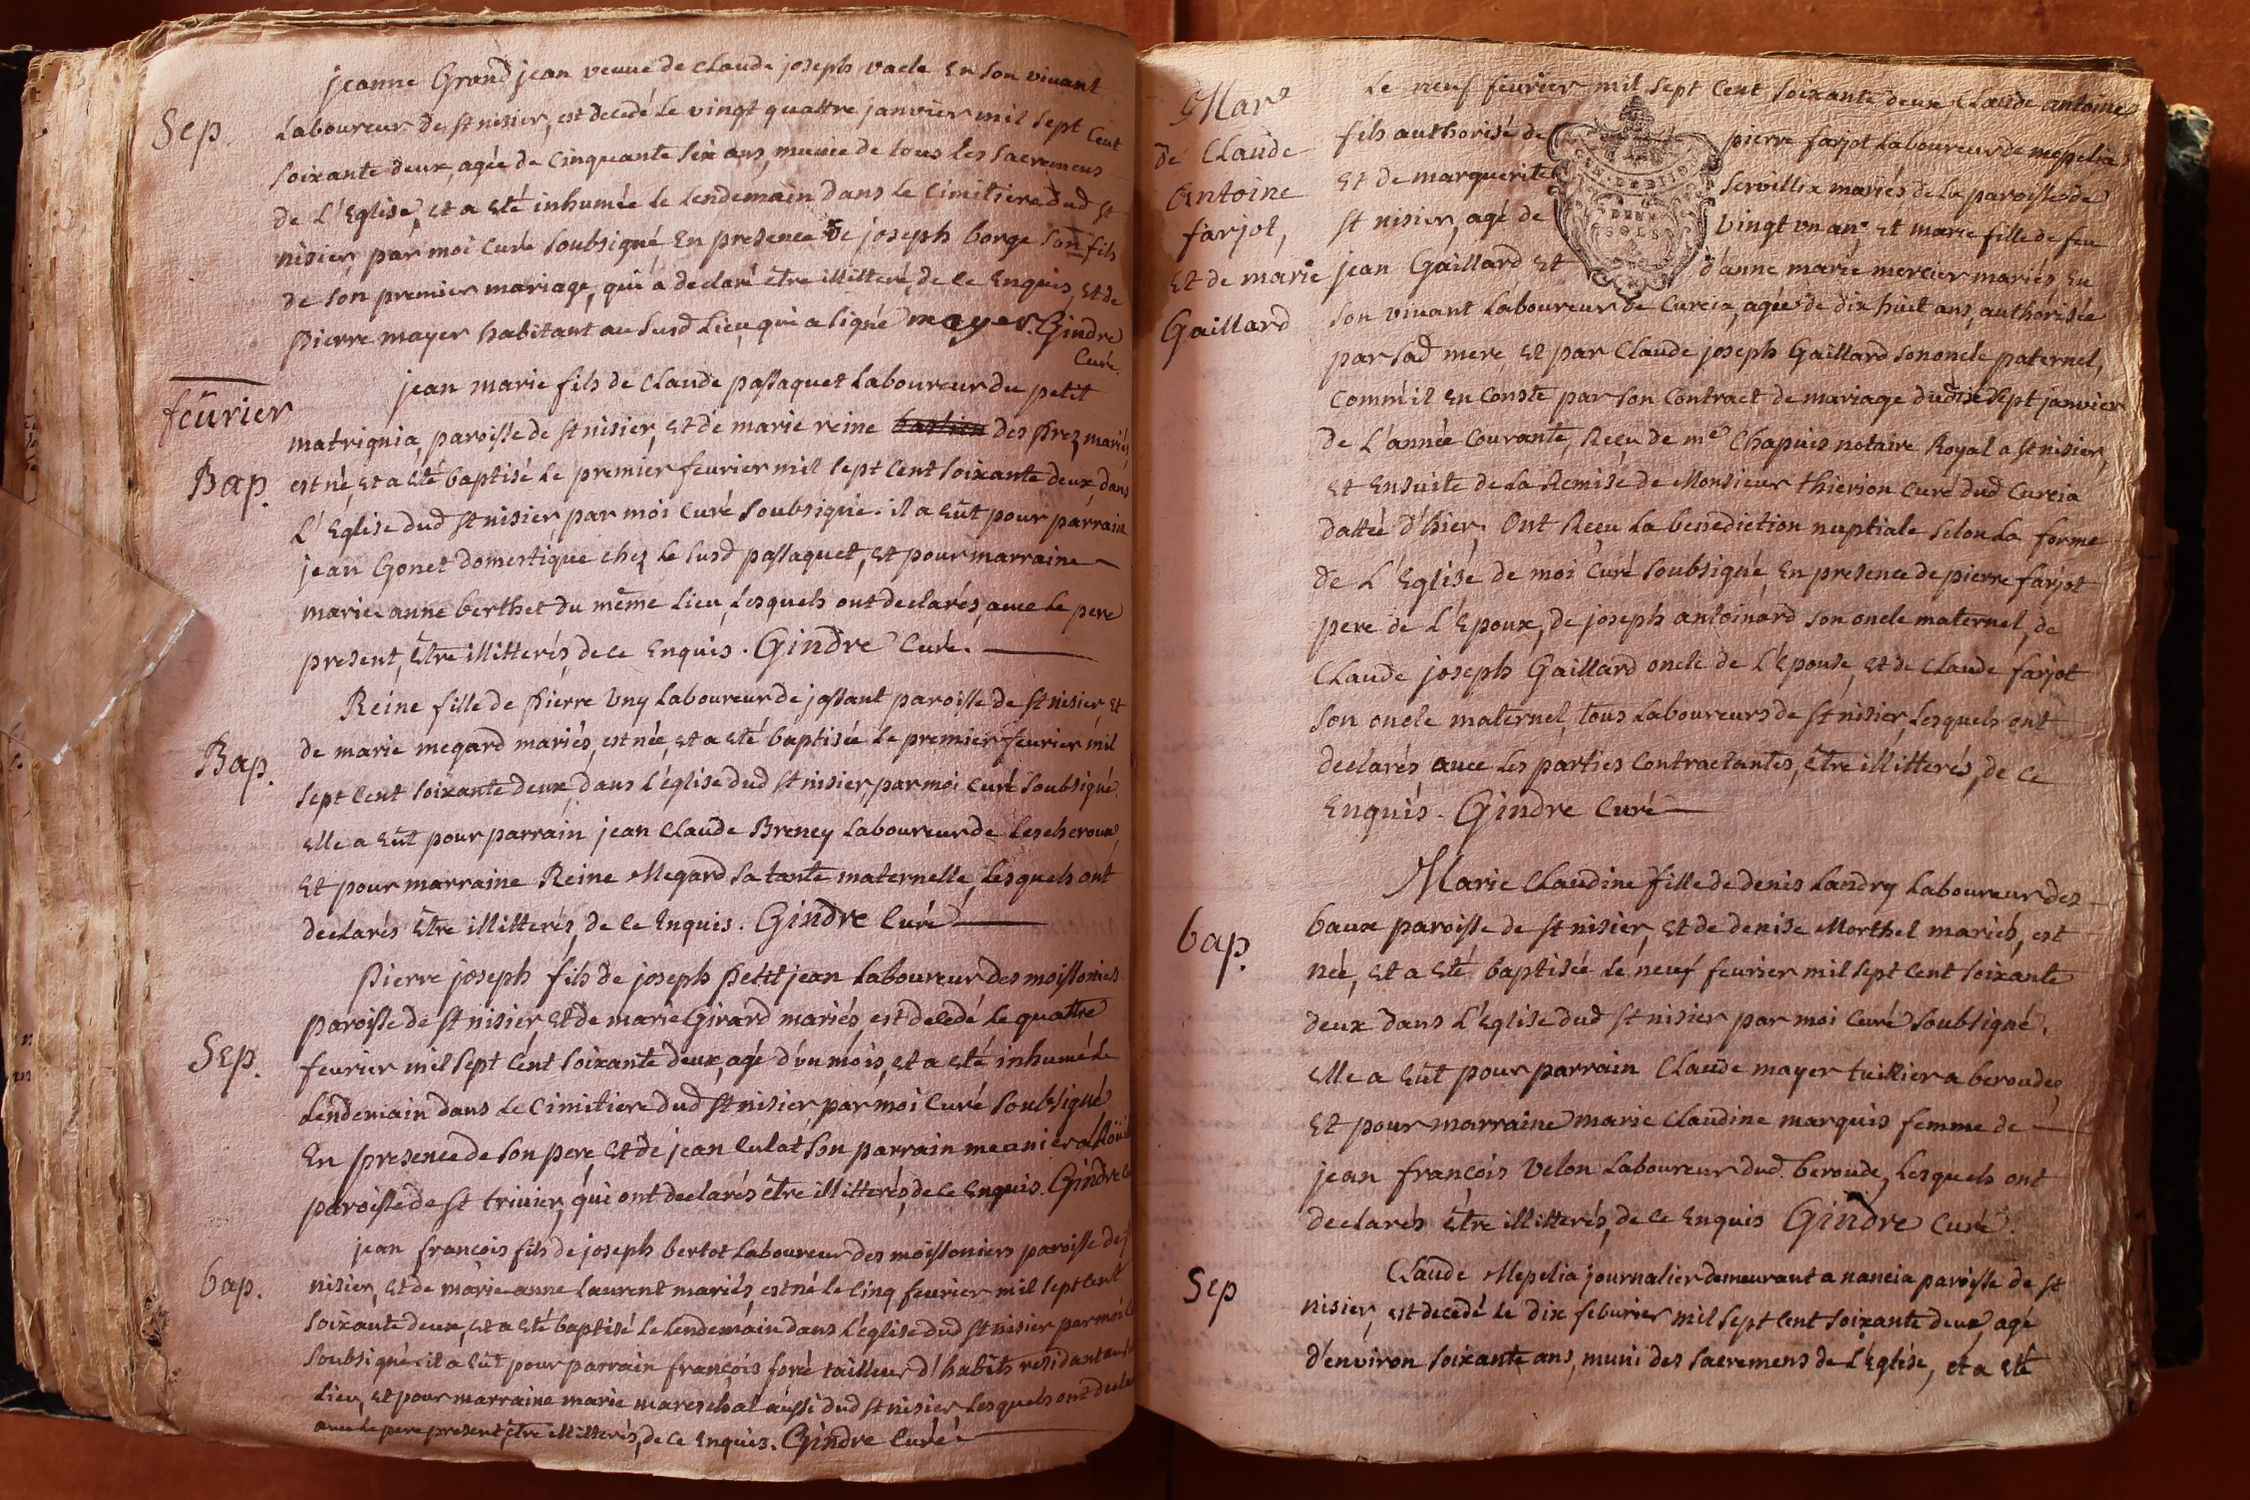 jeanne Grand jean veuve de claude joseph vacle En son vivant
Sep. Laboureur de st nisier, est decedé le vingt quattre janvier mil sept Cent
soixante deux, agée de Cinquante six ans, munie de tous les sacremens
de L'Eglise, et a eté inhumée le lendemain dans le Cimitiere dud st
nisier, par moi Curé soubsigné, En presence de joseph borge son fils
de son premier mariage, qui a declaré être illitteré, de ce Enquis, et de
Pierre mayer habitant au susd Lieu, qui a signé mayer. Gindre
Curé.
fevrier
jean marie fils de Claude passaquet Laboureur du petit
matrignia, paroisse de st nisier, et de marie reine des Prez mariés,
Bap. est né, et a eté baptisé le premier fevrier mil sept Cent soixante deux, dans
L'Eglise dud st nisier, par moi Curé soubsigné. il a eût pour parrain
jean Gonet domestique chez le susd passaquet, et pour marraine
marie anne berthet du même Lieu, lesquels ont declarés, avec le pere
present, être illitterés, de ce Enquis. Gindre Curé.
Reine fille de Pierre Vny Laboureur de jassant paroisse de st nisier, et
de marie megard mariés, est née, et a eté baptisée le premier fevrier mil
Bap. sept Cent soixante deux, dans l'église dud st nisier, par moi Curé soubsigné.
elle a eût pour parrain jean Claude Breney Laboureur de Lescheroux,
et pour marraine Reine Megard sa tante maternelle, lesquels ont
declarés être illitterés, de ce Enquis. Gindre Curé
Pierre joseph fils de joseph Petit jean Laboureur des moissoniers
paroisse de st nisier, et de marie Girard mariés, est decedé le quattre
Sep. fevrier mil sept Cent soixante deux, agé d'vn mois, et a eté inhumé le
Lendemain dans le Cimitiere dud st nisier par moi Curé soubsigné
En presence de son pere, et de jean Culat son parrain
paroisse de st trivier, qui ont declarés être illitterés, de ce Enquis. Gindre
jean françois fils de joseph bertot Laboureur des moissoniers paroisse de
bap. nisier, et de marie anne Laurent mariés, est né le Cinq fevrier mil sept Cent
soixante deux, et a eté baptisé le lendemain dans l'église dud st nisier par moi
soubsigné: il a eût pour parrain françois foré tailleur d'habits residant au
Lieu, et pour marraine marie mareschal aussi dud st nisier, lesquels ont
avec le pere present, être illitterés, de ce Enquis. Gindre Curé.
Mar.e Le neuf fevrier mil sept Cent soixante deux Claude antoine
de Claude fils authorisé de pierre farjot Laboureur de mepelia
Antoine et de marguerite Servillix mariés de la paroisse de
farjot, st nisier, agé de vingt vn ans, et marie fille de feu
et de marie jean Gaillard et d'anne marie mercier mariés, en
Gaillard son vivant Laboureur de Curcia, agée de dix huit ans, authorisée
GENERALITE
DEUX
SOLS
par sad mere, et par Claude joseph Gaillard son oncle paternel,
Comm'il en Conste par son Contract de mariage du dix sept janvier
de L'année Courante, Reçu de me Chapuis notaire Royal a st nisier,
et Ensuite de La Remise de Monsieur thierion Curé dud Curcia
dattée d'hier, Ont Reçu La benediction nuptiale selon La forme
de L'Eglise de moi Curé soubsigné, En presence de pierre farjot
pere de L'Epoux, de joseph antoinard son oncle maternel, de
Claude joseph Gaillard oncle de L'Epouse, et de Claude farjot
son oncle maternel, tous Laboureurs de st nisier, lesquels ont
declarés avec les parties Contractantes, être illitterés, de ce
Enquis. Gindre Curé
Marie Claudine fille de denis Landry Laboureur des
bap. baux paroisse de st nisier, et de denise Morthel mariés, est
née, et a eté baptisée le neuf fevrier mil sept Cent soixante
deux dans L'Eglise dud st nisier par moi Curé soubsigné.
elle a eût pour parrain Claude mayer tuillier a beroudes,
et pour marraine marie Claudine marquis femme de
jean françois Velon Laboureur dud. beroude, lesquels ont
declarés être illitterés, de ce Enquis Gindre Curé.
Claude Mepelia journalier demeurant a nancia paroisse de st
Sep nisier, est decedé le dix feburier mil sept Cent soixante deux, agé
d'environ soixante ans, muni des sacremens de L'Eglise, et a eté